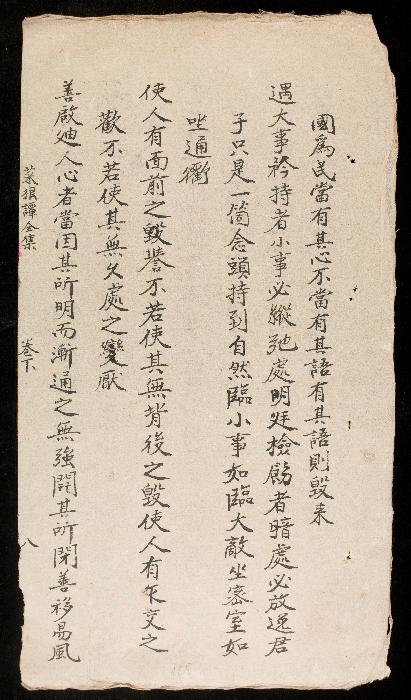 國爲民當有其心不當有其語有其語則毀来
遇大事矜持者小事必縱弛處明廷檢飭者暗處必放逸君
子只是一箇念頭持到自然臨小事如臨大敵坐密室如
坐通衢
使人有面前之毀譽不若使其無背後之毀使人有乍交之
歡不若使其無久處之變厭
善啟迪人心者當因其所明而漸通之無強開其所閉善移易風
菜根譚全集 卷下 八